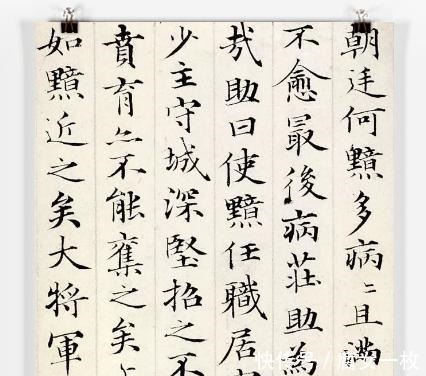 朝廷何黯多病〻且満
不愈最後病莊助為
哉助曰使黯任職居
少主守城深堅招之不
賁育亦不能奪之矣
如黯近之矣大将軍
快传号
一枚